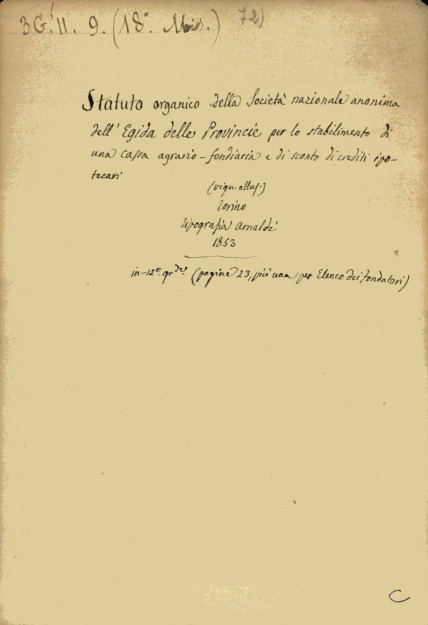 3G. II. 9. (18° Mis.) 72)
Statuto organico della Società nazionale anonima
dell' Egida delle Provincie per lo stabilimento di
una cassa agrario-fondiaria e di sconto di crediti ipo-
tecari
(vign. allus.)
Torino
Tipografia Arnaldi
1853
in-12°. gr.de (pagine 23, più una per Elenco dei fondatori)
C